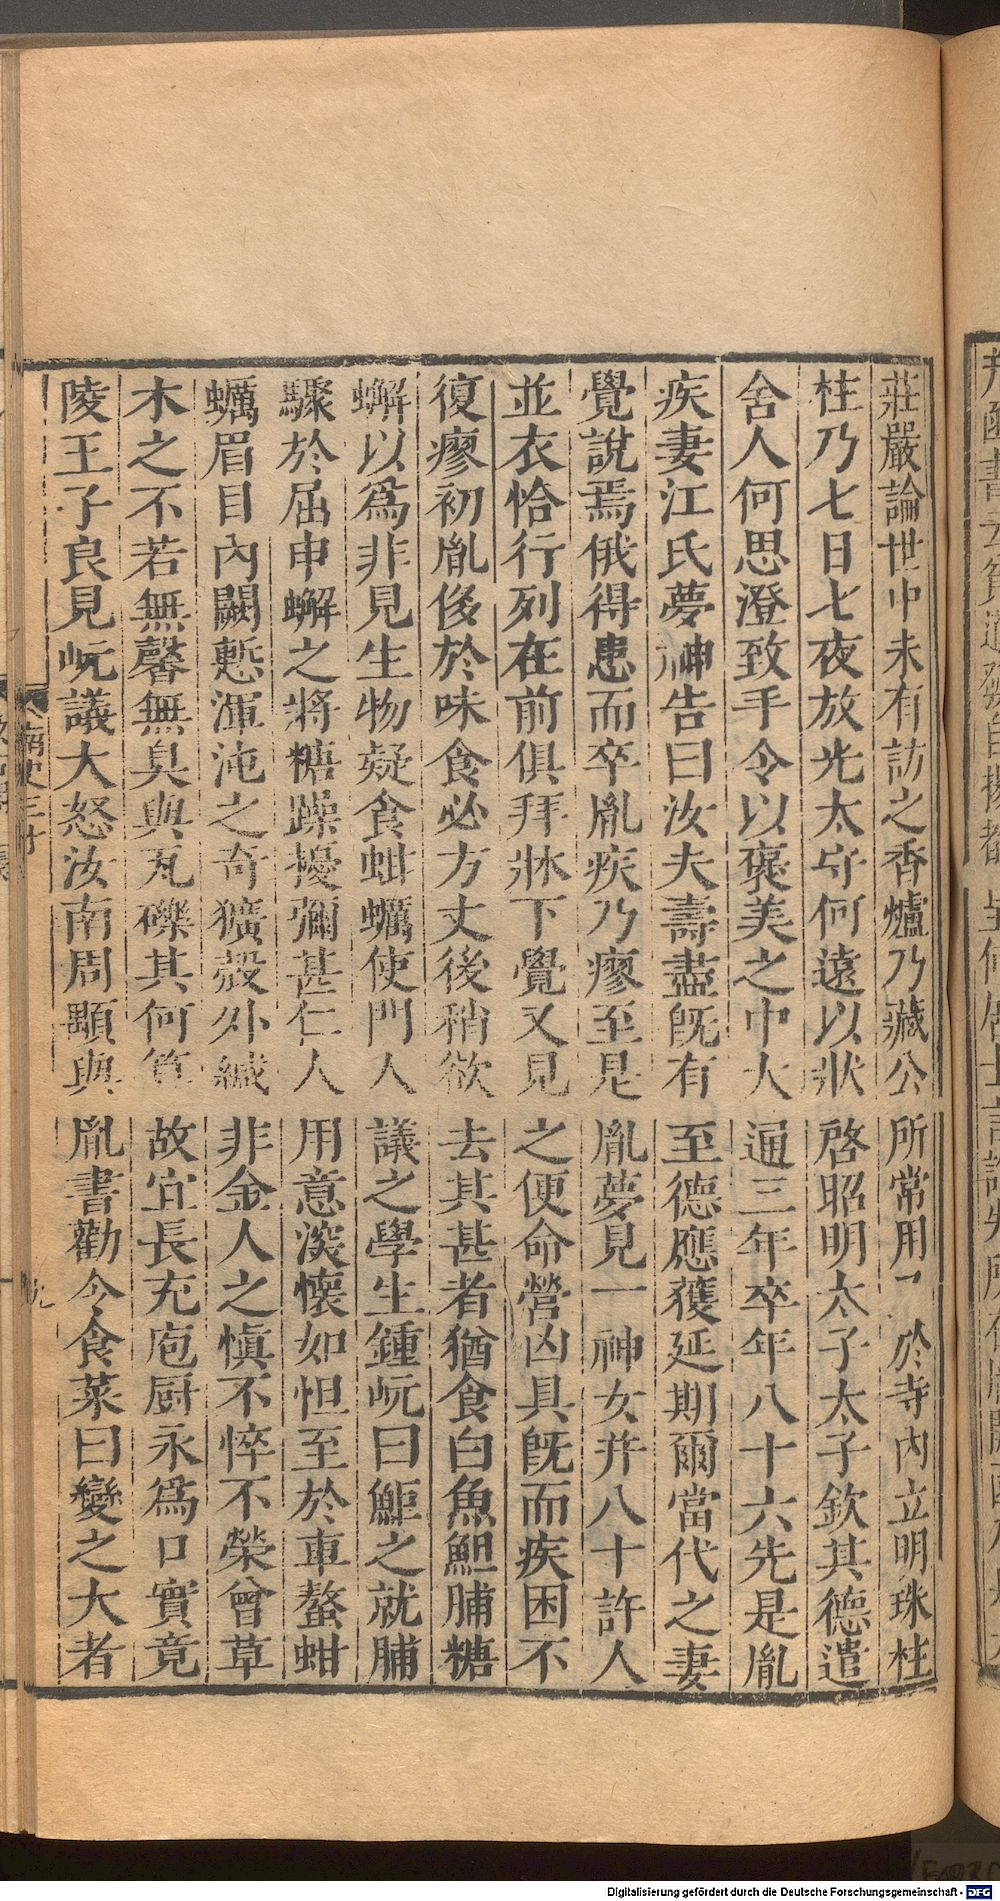 莊嚴論世中未有訪之香爐乃藏公所常用於寺內立明珠柱
柱乃七日七夜放光太守何遠以狀啓昭明太子太子欽其德遣
舍人何思澄致手令以褒美之中大通三年卒年八十六先是胤
疾妻江氏夢神告曰汝夫壽盡既有至德應獲延期爾當代之妻
覺說焉俄得患而卒胤疾乃瘳至是胤夢見一神女并八十許人
並衣恰行列在前俱拜牀下覺又見之便命營凶具既而疾困不
復瘳初胤侈於味食必方丈後稍欲去其甚者猶食白魚䱇脯糖
蠏以爲非見生物疑食蚶蠣使門人議之學生鍾岏曰䱇之就脯
驟於屈申蠏之將糖躁擾彌甚仁人用意深懷如怛至於車螯蚶
蠣眉目內闕慙渾沌之奇獷殼外緘非金人之愼不悴不榮曾草
木之不若無馨無臭與瓦礫其何算故宜長充庖厨永爲口實竟
陵王子良見岏議大怒汝南周顒與胤書勸令食菜曰變之大者
南史三十
九
Digitalisierung gefördert durch die Deutsche Forschungsgemeinschaft - DFG